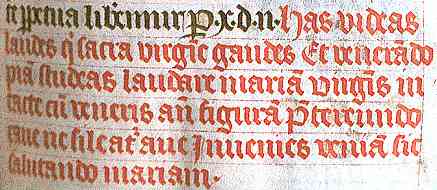 te ppetua libemur P. x. d. n. has videas
laudes q sacra virgine gaudes Et venerado
pia studeas laudare maria virgis in
tacte cu veneris an figura Ptereundo
caue ne sileat aue Inuenies venia sic
salutando mariam.